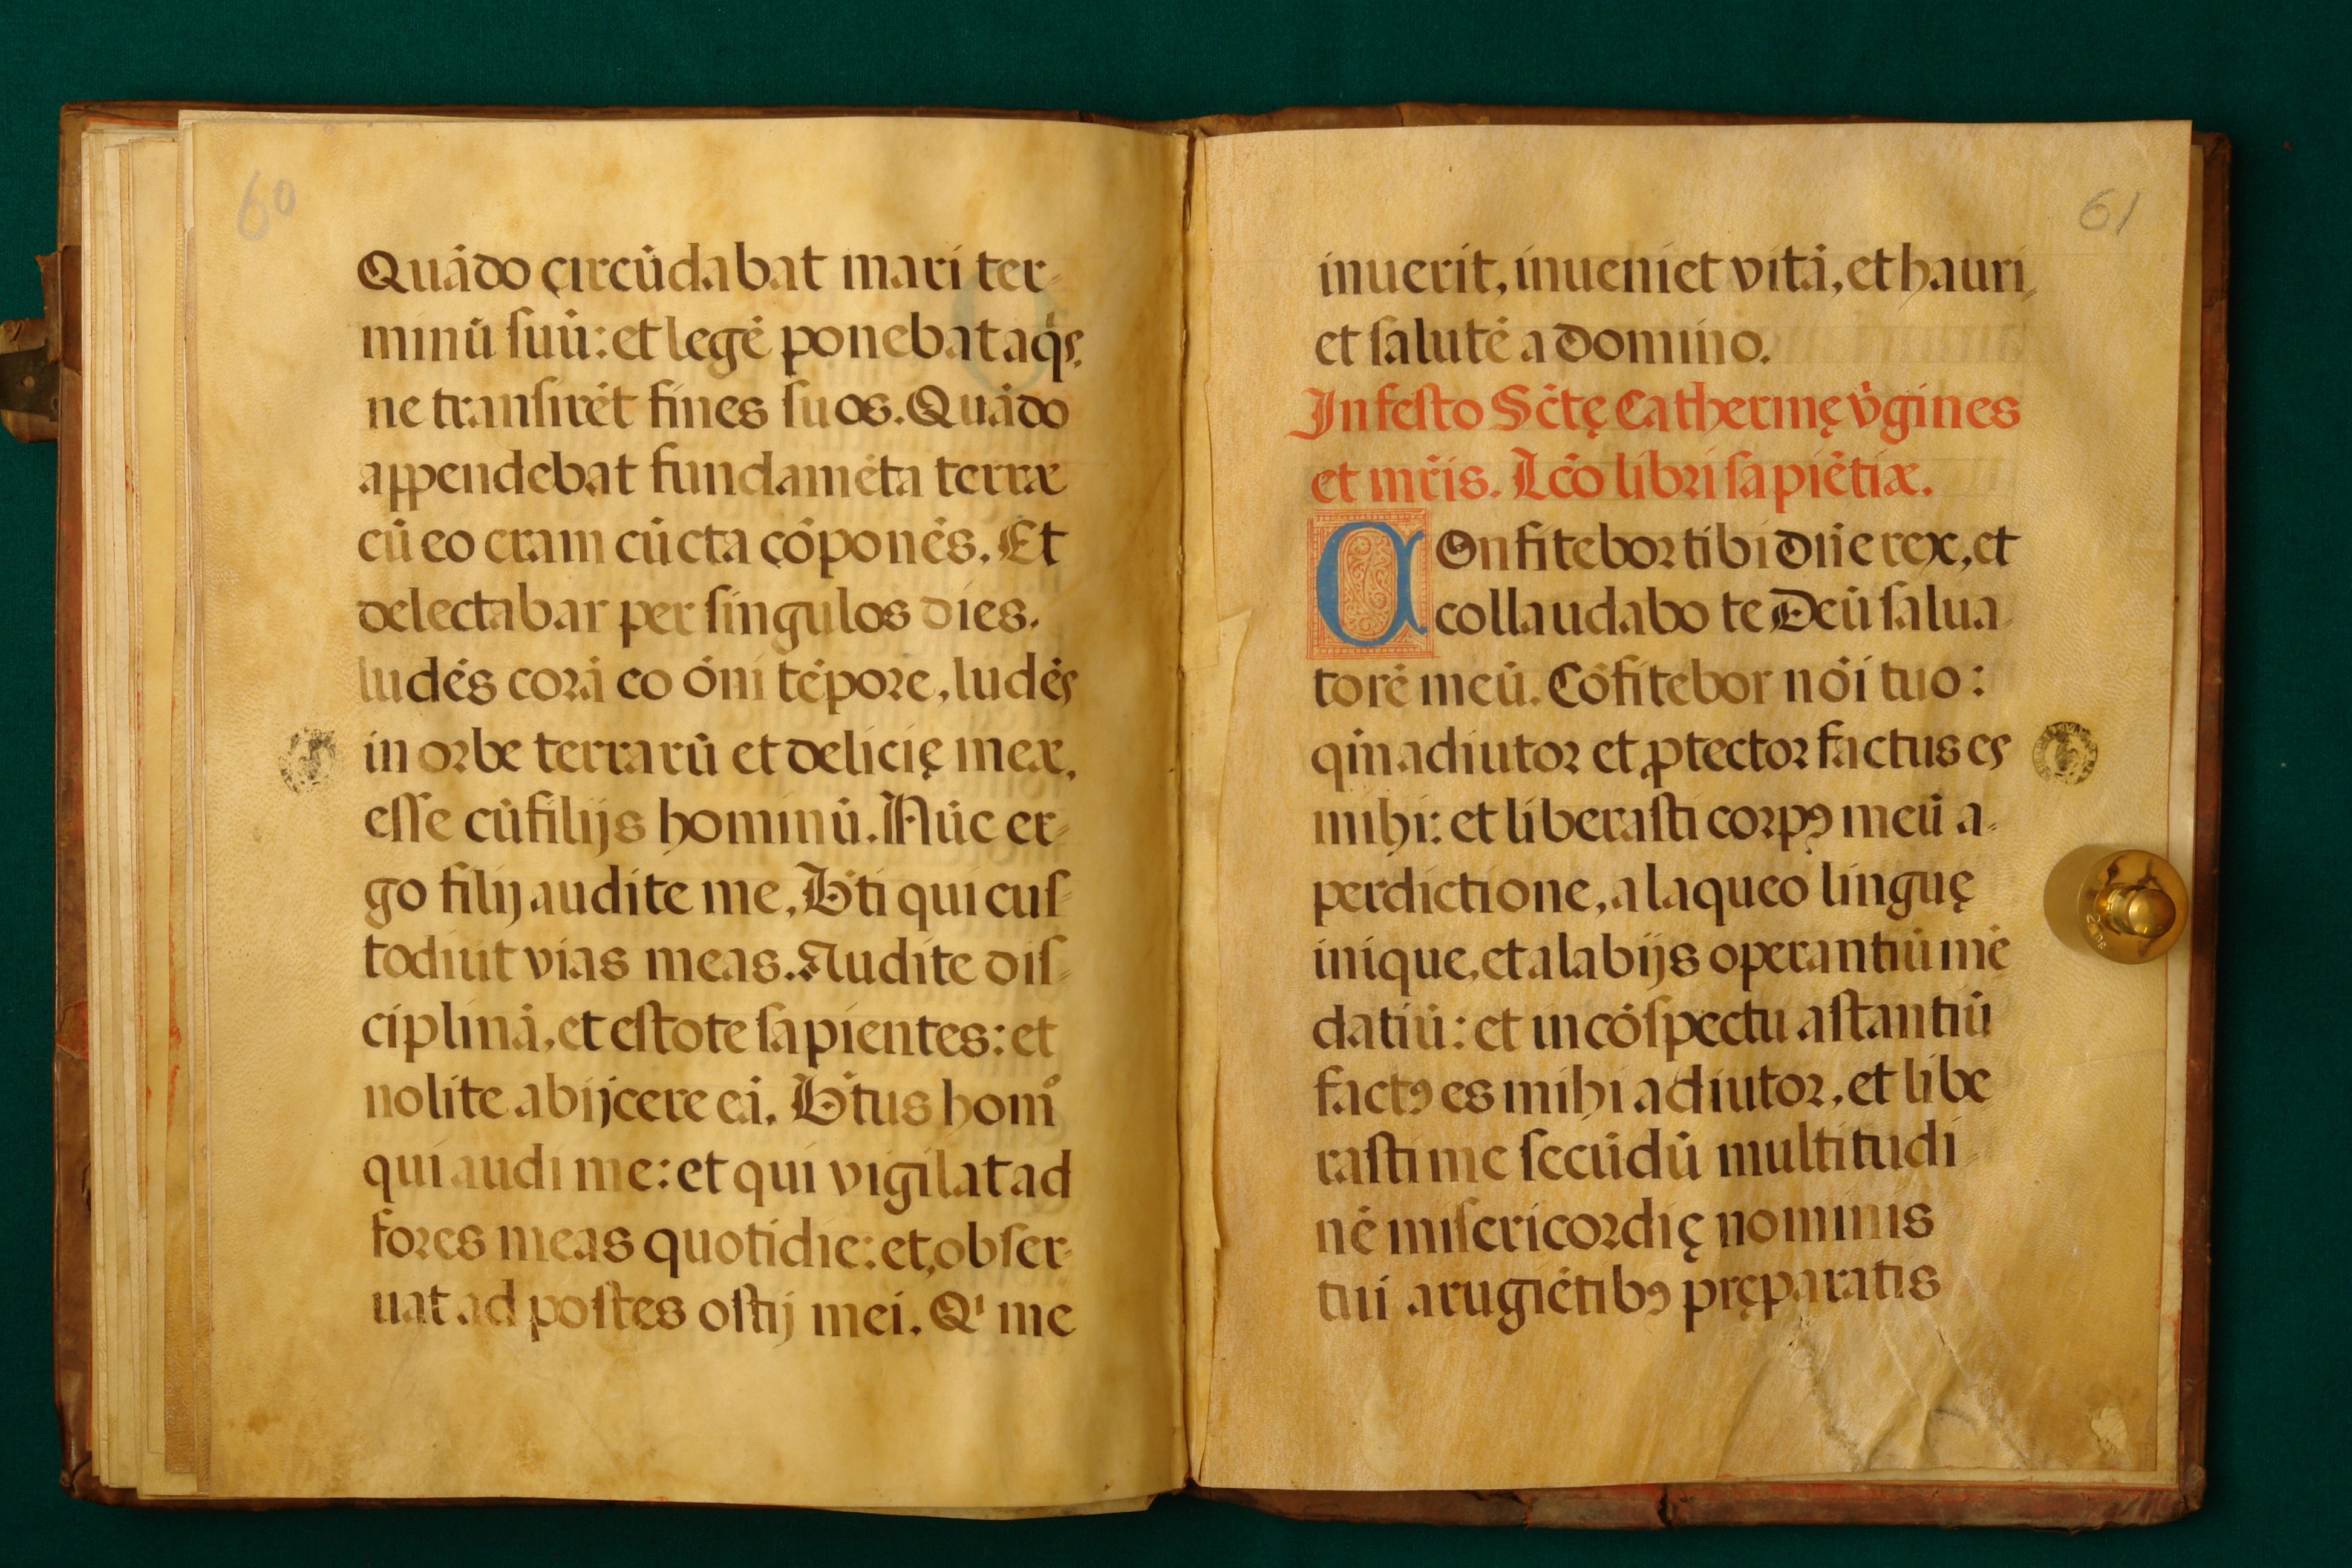 60
Quādo circūdabat mari ter-
minū ſuū: et legē ponebat aqs.
ne tranſirēt fines ſuos. Quādo
appendebat fundamēta terræ
cū eo eram cūcta cōponēs. Et
delectabar per ſingulos dies.
ludēs corā eo ōni tēpore, ludēs
in orbe terrarū et delicię meæ,
eſſe cū filijs hominū. Nūc er-
go filij audite me, B̄ti qui cuſ-
todiūt vias meas. Audite diſ-
ciplinā, et eſtote ſapientes: et
nolite abijcere eā. B̄tus homͦ
qui audi me: et qui vigilat ad
fores meas quotidie: et, obſer-
uat ad poſtes oſtij mei. Qⁱ me
61
inuerit, inueniet vitā, et hauri,
et ſalutē a domino.
In feſto Sc̄tę Catherinę v̄gines
et mr̄is. Lc̄o libri ſapiētiæ.
COnfitebor tibi dn̄e rex, et
collaudabo te Deū ſalua
torē meū. Cōfitebor nōi tuo:
qm̄ adiutor et ꝓtector factus es
mihi: et liberaſti corpꝯ meū a-
perdictione, a laqueo linguę
inique, et a labijs operantiū mē
datiū: et in cōſpectu aſtantiū
factꝯ es mihi adiutor, et libe
raſti me ſecūdū multitudi
nē miſericordię nominis
tui a rugiētibꝯ pręparatis